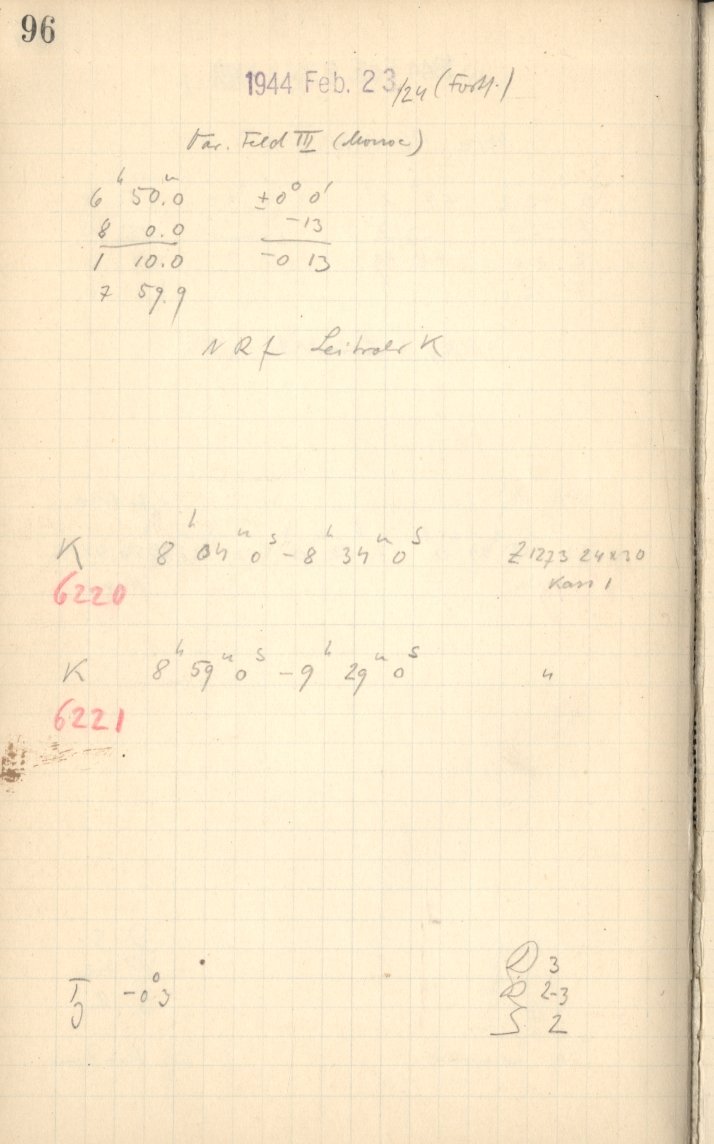 96
1944 Feb. 23/24 (Forts.)
Var. Feld III (Monoc)
6ʰ 50.0ᵐ ±0° 0'
8 0.0 -13
1 10.0 -0 13
7 59.9
K 8ʰ 04ᵐ 0ˢ - 8ʰ 34ᵐ 0ˢ Z1273 24x30
Kass 1
6220
K 8ʰ 59ᵐ 0ˢ - 9ʰ 29ᵐ 0ˢ "
6221
D 3
R 2-3
-0°3
S 2